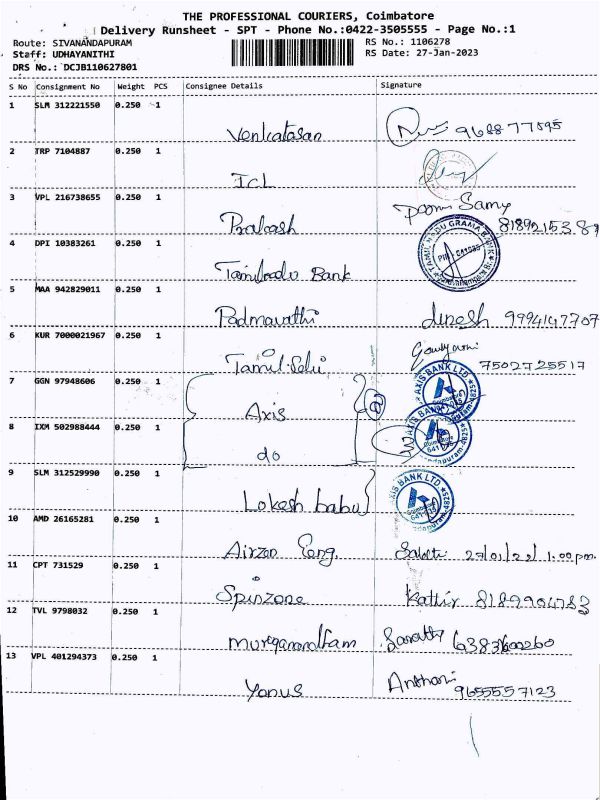 THE PROFESSIONAL COURIERS, Coimbatore
Delivery Runsheet - SPT - Phone No.:0422-3505555 - Page No.:1
Route: SIVANANDAPURAM RS No.: 1106278
Staff: UDHAYANITHI RS Date: 27-Jan-2023
DRS No.: DCJB110627801
S No Consignment No Weight PCS Consignee Details Signature
1 SLM 312221550 0.250 1
Venkatasan 9688777595
2 TRP 7104887 0.250 1
ICL
3 VPL 216738655 0.250 1 Samy
Prakash
4 DPI 10383261 0.250 1 TAMIL NADU GRAMA BANK
Tamilnadu Bank
5 MAA 942829011 0.250 1
Padmavathi dinesh 9994147707
6 KUR 7000021967 0.250 1
Tamil Selvi 7502725517
7 GGN 97948606 0.250 1 AXIS BANK LTD
Axis
8 IXM 502988444 0.250 1 AXIS BANK LTD
do
9 SLM 312529990 0.250 1 AXIS BANK LTD
Lokesh babu
10 AMD 26165281 0.250 1
Airzon Eng. 1.00 pm.
11 CPT 731529 0.250 1
Spinzone Kathir 8189904783
12 TVL 9798032 0.250 1
Muruganandham
13 VPL 401294373 0.250 1
Yanus Anthoni 9655557123